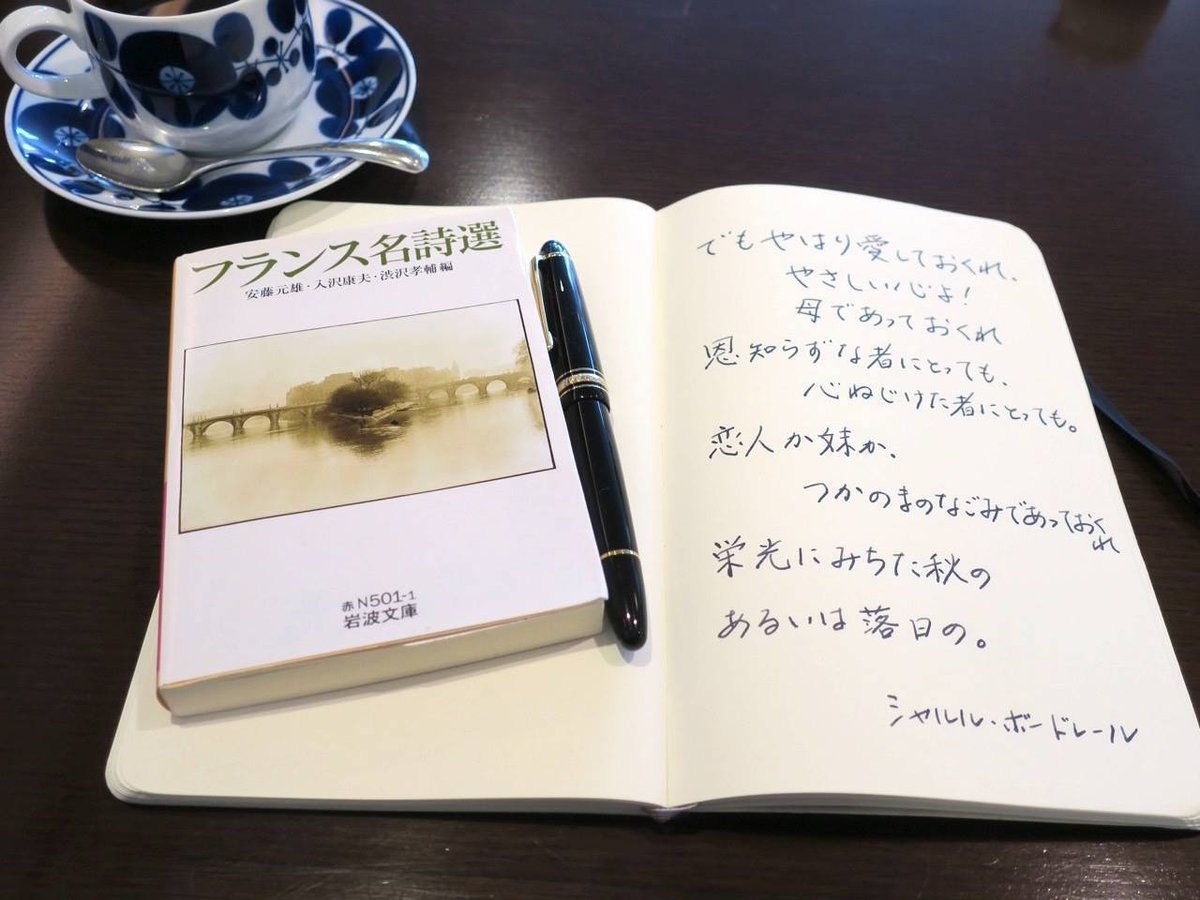 フランス名詩選
安藤元雄・入沢康夫・渋沢孝輔 編
赤N501-1
岩波文庫
でもやはり愛しておくれ、
やさしい心よ!
母であっておくれ
恩知らずな者にとっても、
心ねじけた者にとっても。
恋人か妹か、
つかのまのなごみであっておくれ
栄光にみちた秋の
あるいは落日の。
シャルル・ボードレール